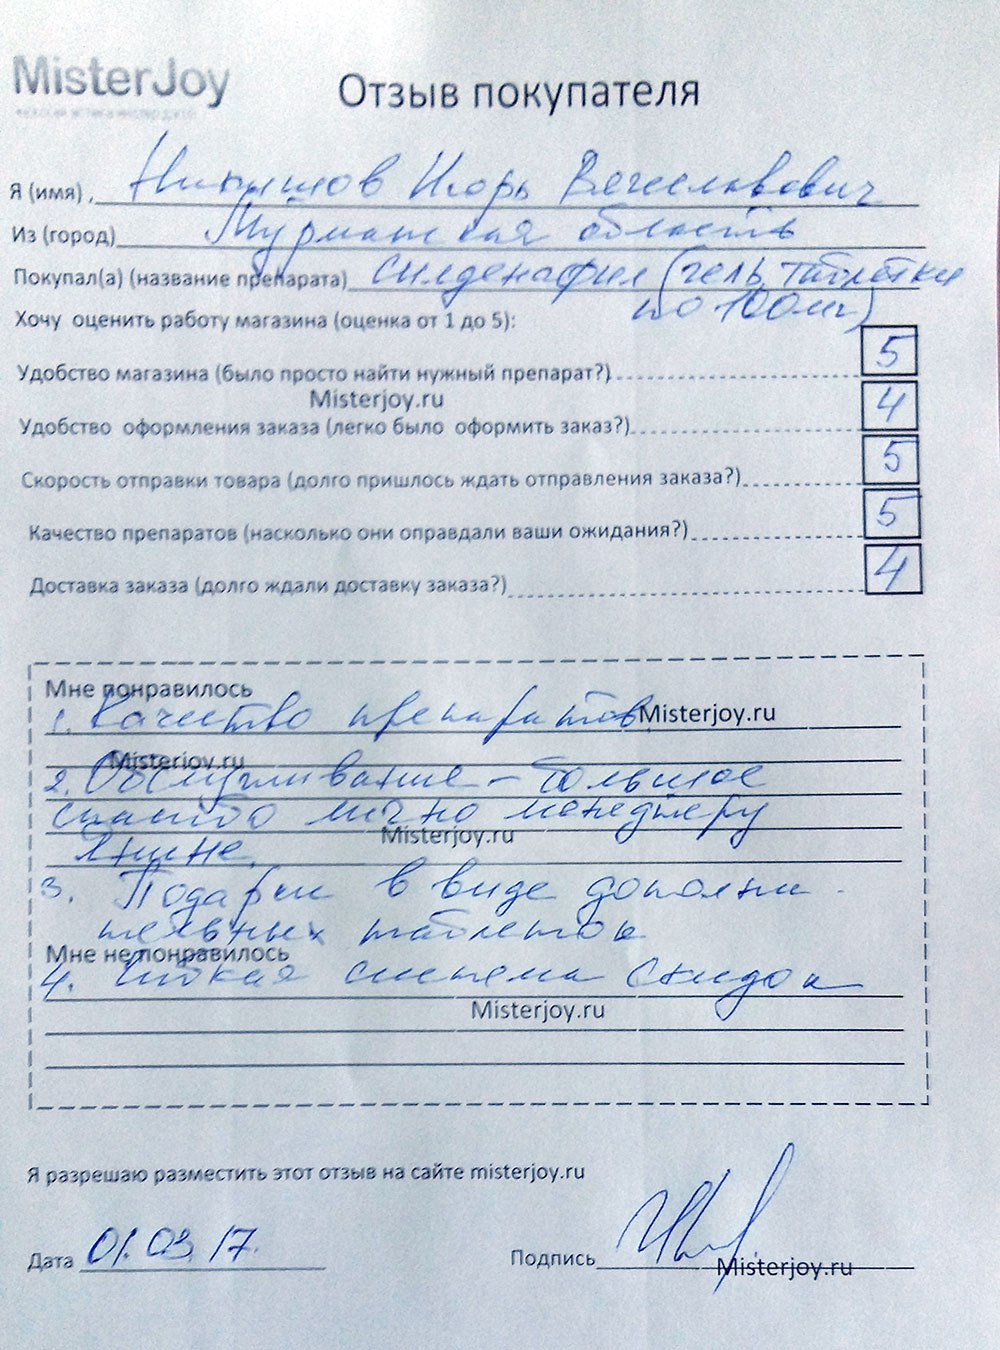 MisterJoy
Отзыв покупателя
Я (имя) , Никишов Игорь Вячеславович
Из (город) Мурманская область
Покупал(а) (название препарата) силденафил (гель, таблетки
по 100мг)
Хочу оценить работу магазина (оценка от 1 до 5):
Удобство магазина (было просто найти нужный препарат?) 5
Misterjoy.ru
Удобство оформления заказа (легко было оформить заказ?) 4
Скорость отправки товара (долго пришлось ждать отправления заказа?) 5
Качество препаратов (насколько они оправдали ваши ожидания?) 5
Доставка заказа (долго ждали доставку заказа?) 4
Мне понравилось
1. Качество препаратов Misterjoy.ru
Misterjoy.ru
2. Обслуживание - большое
спасибо лично менеджеру
Misterjoy.ru
Янине.
3. Подарки в виде дополни-
тельных таблеток
Мне не понравилось
4. Гибкая система скидок
Misterjoy.ru
Я разрешаю разместить этот отзыв на сайте misterjoy.ru
Дата 01.03.17. Подпись
Misterjoy.ru